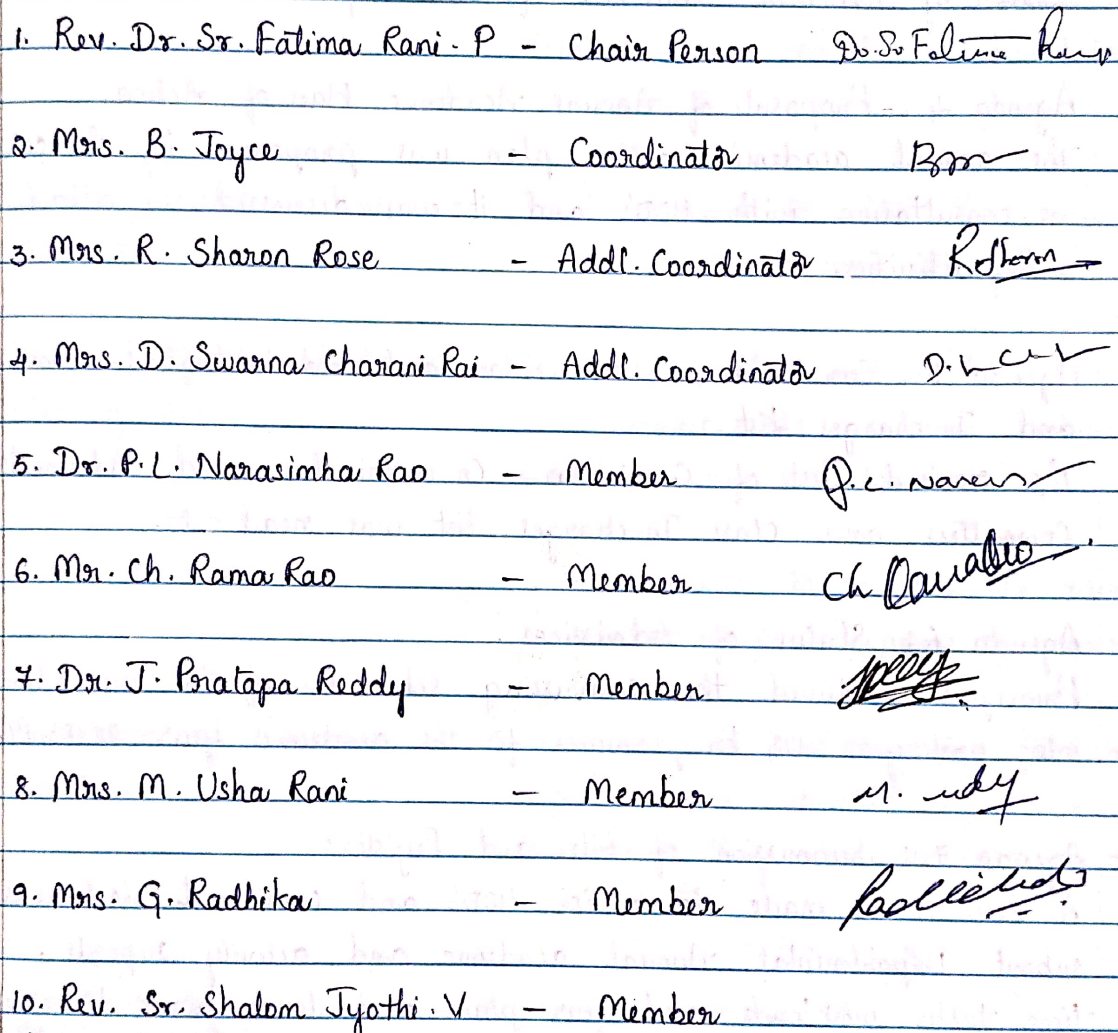 1. Rev. Dr. Sr. Fatima Rani. P - Chair Person Dr. Sr. Fatima Rani
2. Mrs. B. Joyce - Coordinator
3. Mrs. R. Sharon Rose - Addl. Coordinator R Sharon
4. Mrs. D. Swarna Charani Rai - Addl. Coordinator
5. Dr. P. L. Narasimha Rao - Member
6. Mr. Ch. Rama Rao - Member Ch Ramarao
7. Dr. J. Pratapa Reddy - Member
8. Mrs. M. Usha Rani - Member
9. Mrs. G. Radhika - Member Radhika
10. Rev. Sr. Shalom Jyothi. V - Member